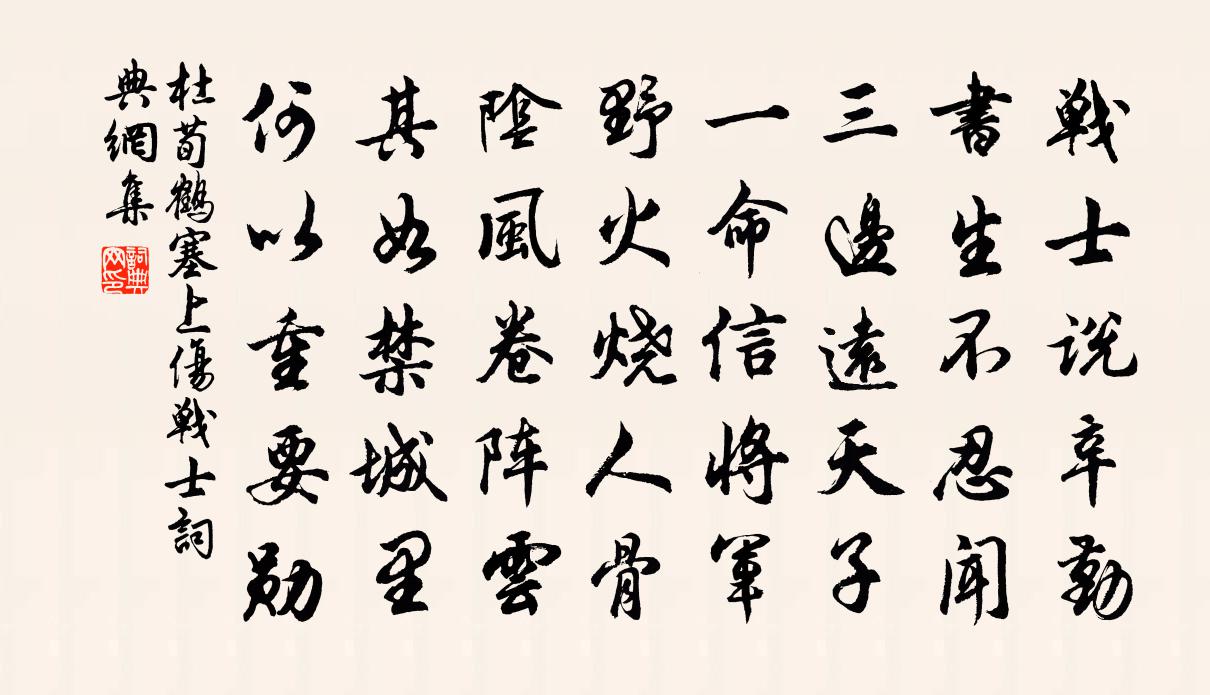 戦士説辛勤
書生不忍聞
三邊遠天子
一命信將軍
野火烧人骨
陰風卷阵雲
其如禁城里
何以重要勋
杜荀鶴塞上傷戦士詞
典網集
詞典網印